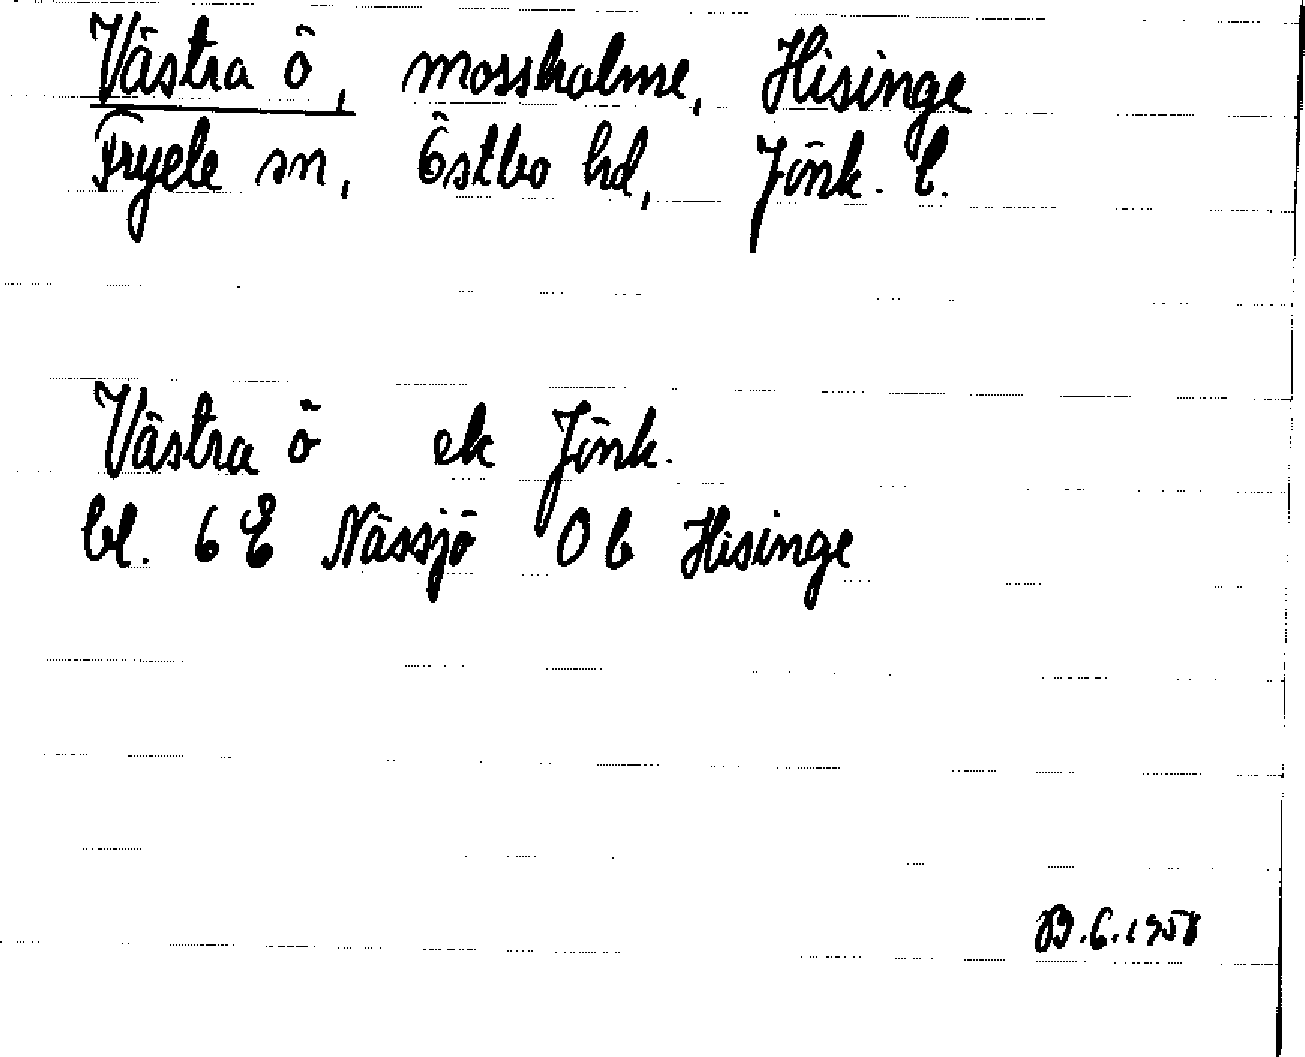 Västra ö, mossholme, Hisinge
Fryele sn, Östbo hd, Jönk. l.
Västra ö ek Jönk.
bl. 6 E Nässjö 0 b Hisinge
B.C. 1958